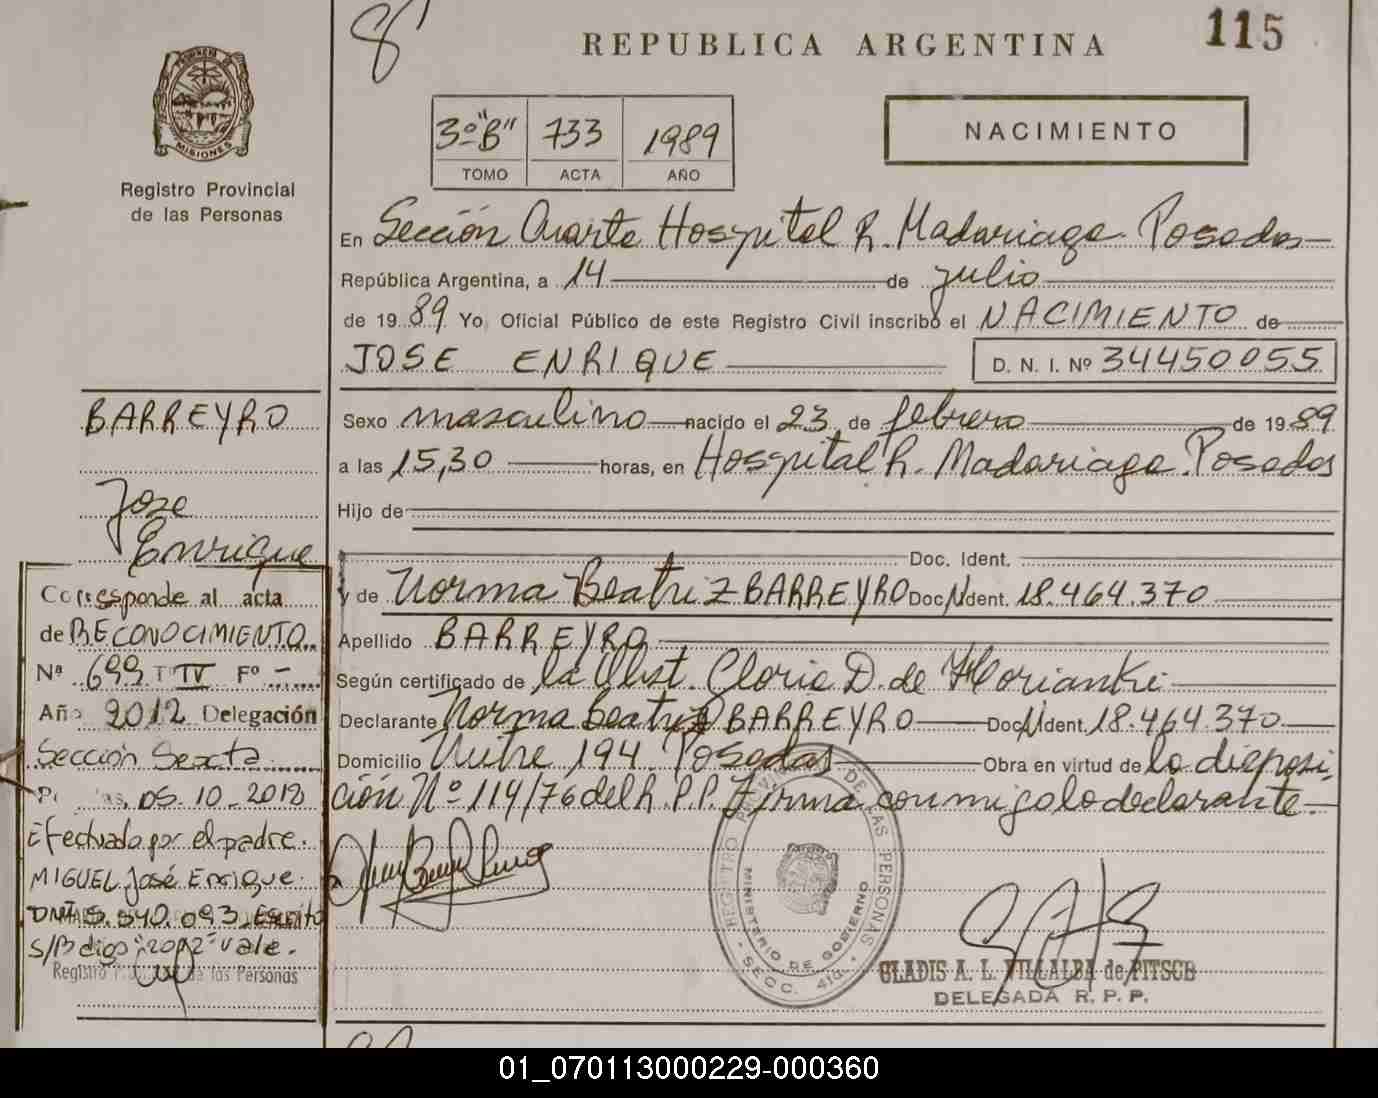 REPUBLICA ARGENTINA
115
8
PROVINCIA DE MISIONES
Registro Provincial
de las Personas
3º "B" 733 1989
TOMO ACTA AÑO
NACIMIENTO
En Sección Cuarta Hospital R. Madariaga Posadas
República Argentina, a 14 de julio
de 19 89 Yo, Oficial Público de este Registro Civil inscribo el NACIMIENTO de
JOSE ENRIQUE D. N. I. Nº 34450055
Sexo masculino nacido el 23 de febrero de 19 89
a las 15,30 horas, en Hospital R. Madariaga Posadas
Hijo de
Doc. Ident.
y de Norma Beatriz BARREYRO Doc. Ident. 18.464.370
Apellido BARREYRO
Según certificado de la Obst. Gloria D. de
Declarante Norma Beatriz BARREYRO Doc. Ident. 18.464.370
Domicilio 194 Posadas Obra en virtud de la disposi-
ción Nº 114/76 del R.P.P. Firma conmigo la declarante.
BARREYRO
Jose
Enrique
Corresponde al acta
de RECONOCIMIENTO
Nº 699 T IV Fº -
Año 2012 Delegación
Sección Sexta
05.10.2012
Efectuado por el padre.
MIGUEL José Enrique.
Escrito
S/B digo: "2012" Vale.
Registro de las Personas
REGISTRO PROVINCIAL DE LAS PERSONAS
MINISTERIO DE GOBIERNO
SECC. 4ta.
GLADIS A. L. VILLALBA de PITSCH
DELEGADA R. P. P.
01_070113000229-000360